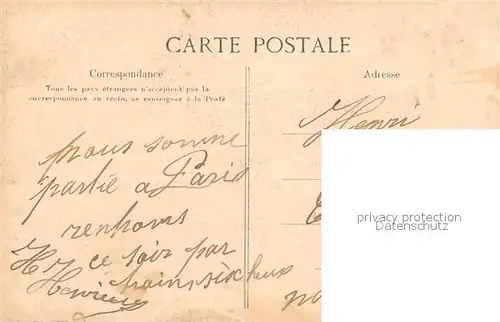 CARTE POSTALE
Correspondance
Tous les pays étrangers n'acceptent pas la
correspondance au recto, se renseigner à la Poste
Adresse
nous somme
partie a Paris
rentrons
ce soir par
train six heur
Henri
privacy protection
Datenschutz